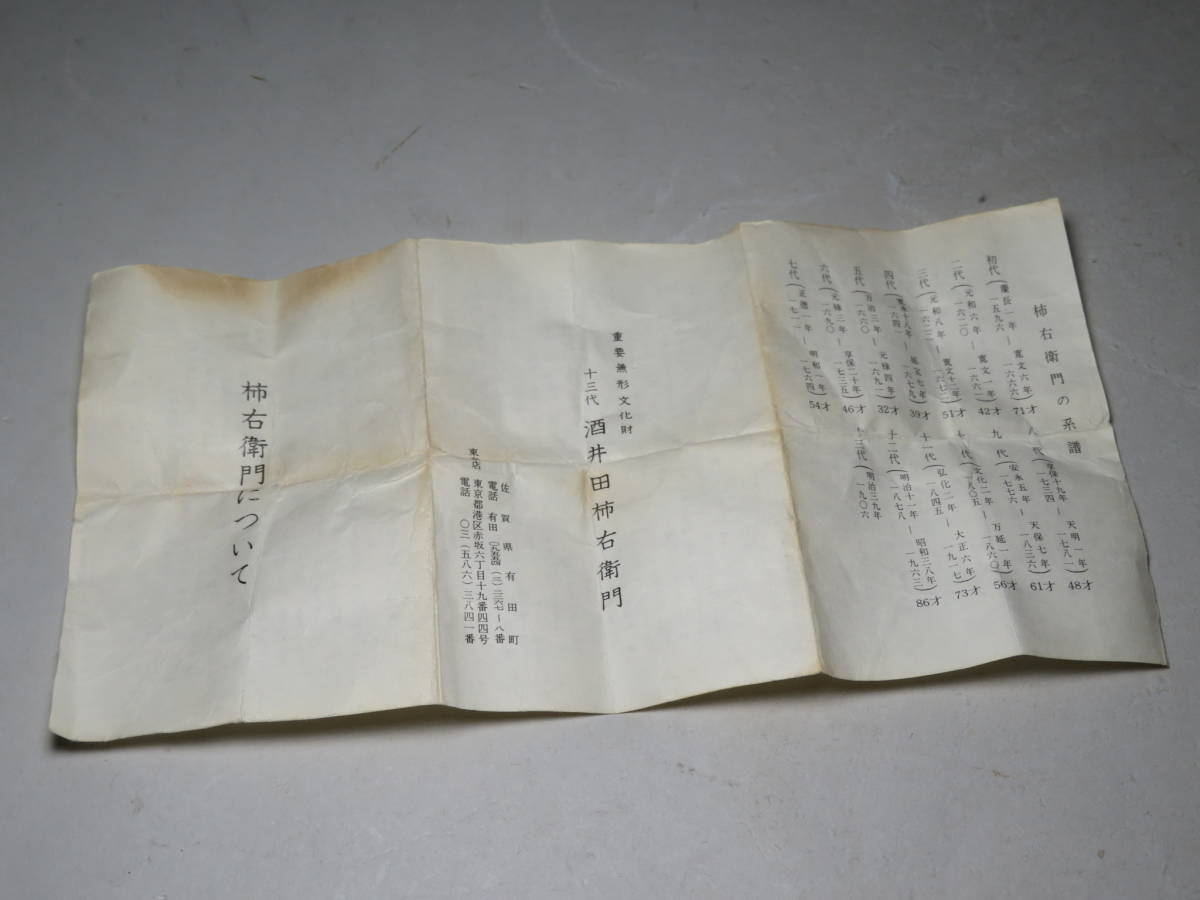 柿右衛門の系譜
初代(慶長一年ー寛文六年)71才
(一五九六 一六六六)
二代(元和六年ー寛文一年)42才
(一六二〇 一六六一)
三代(元和八年ー寛文十二年)51才
(一六二二 一六七二)
四代(寛永十八年ー延宝七年)39才
(一六四一 一六七九)
五代(万治三年ー元禄四年)32才
(一六六〇 一六九一)
六代(元禄三年ー享保二十年)46才
(一六九〇 一七三五)
七代(正徳一年ー明和一年)54才
(一七一一 一七六四)
八代(享保十九年ー天明一年)48才
(一七三四 一七八一)
九代(安永五年ー天保七年)61才
(一七七六 一八三六)
十代(文化二年ー万延一年)56才
(一八〇五 一八六〇)
十一代(弘化二年ー大正六年)73才
(一八四五 一九一七)
十二代(明治十一年ー昭和三八年)86才
(一八七八 一九六三)
十三代(明治三九年
一九〇六
重要無形文化財
十三代 酒井田柿右衛門
佐賀県有田町
電話 有田
東京都港区赤坂六丁目十九番四四号
電話 〇三(五八六)三八四一番
柿右衛門について